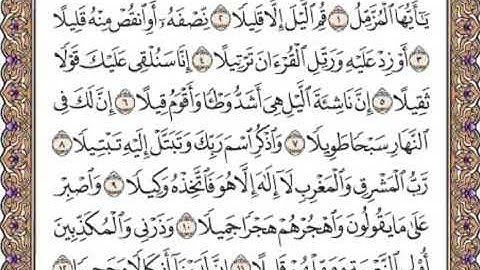 يَٰٓأَيُّهَا ٱلْمُزَّمِّلُ ١ قُمِ ٱلَّيْلَ إِلَّا قَلِيلًا ٢ نِّصْفَهُۥٓ أَوِ ٱنقُصْ مِنْهُ قَلِيلًا
٣ أَوْ زِدْ عَلَيْهِ وَرَتِّلِ ٱلْقُرْءَانَ تَرْتِيلًا ٤ إِنَّا سَنُلْقِى عَلَيْكَ قَوْلًا
ثَقِيلًا ٥ إِنَّ نَاشِئَةَ ٱلَّيْلِ هِىَ أَشَدُّ وَطْـًٔا وَأَقْوَمُ قِيلًا ٦ إِنَّ لَكَ فِى
ٱلنَّهَارِ سَبْحًا طَوِيلًا ٧ وَٱذْكُرِ ٱسْمَ رَبِّكَ وَتَبَتَّلْ إِلَيْهِ تَبْتِيلًا ٨
رَّبُّ ٱلْمَشْرِقِ وَٱلْمَغْرِبِ لَآ إِلَٰهَ إِلَّا هُوَ فَٱتَّخِذْهُ وَكِيلًا ٩ وَٱصْبِرْ
عَلَىٰ مَا يَقُولُونَ وَٱهْجُرْهُمْ هَجْرًا جَمِيلًا ١٠ وَذَرْنِى وَٱلْمُكَذِّبِينَ
أُو۟لِى ٱلنَّعْمَةِ وَمَهِّلْهُمْ قَلِيلًا ١١ إِنَّ لَدَيْنَآ أَنكَالًا وَجَحِيمًا ١٢